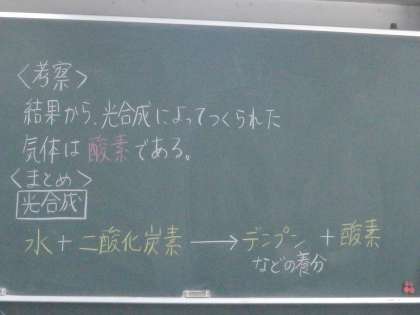 〈考察〉
結果から、光合成によってつくられた
気体は酸素である。
〈まとめ〉
光合成
水+二酸化炭素→デンプン+酸素
などの養分